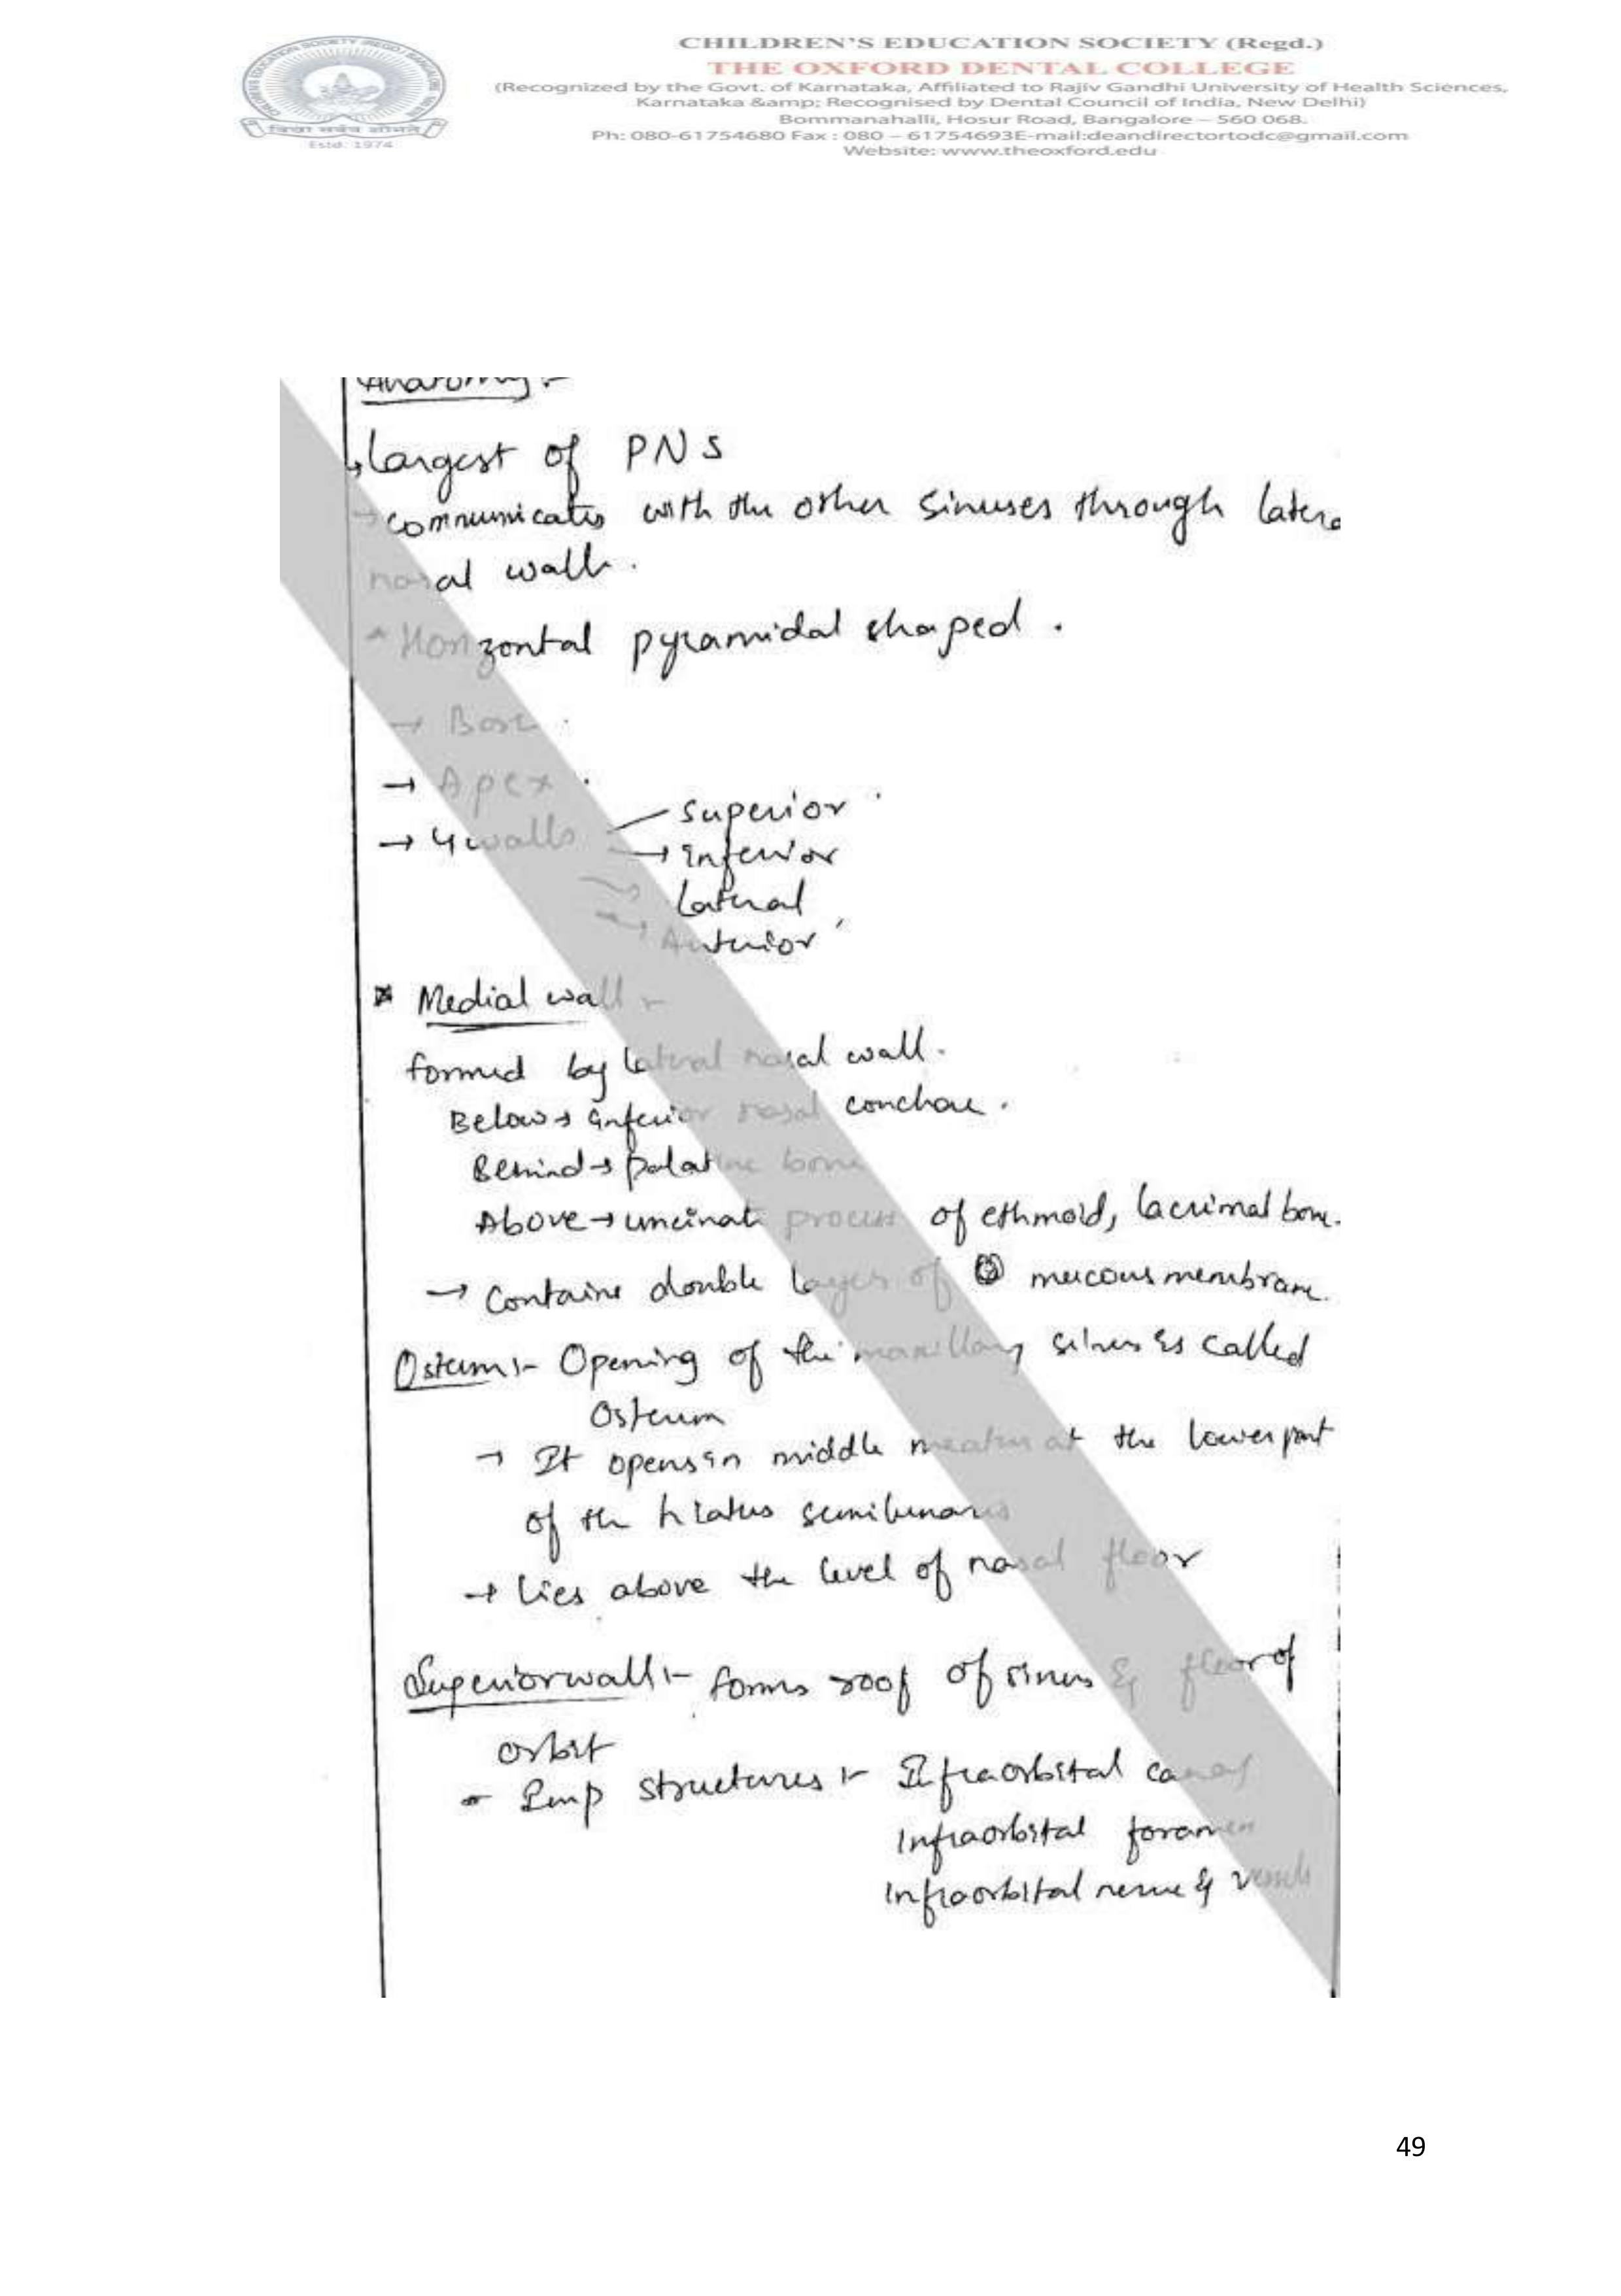 CHILDREN'S EDUCATION SOCIETY (Regd.)
THE OXFORD DENTAL COLLEGE
(Recognized by the Govt. of Karnataka, Affiliated to Rajiv Gandhi University of Health Sciences,
Karnataka &amp; Recognised by Dental Council of India, New Delhi)
Bommanahalli, Hosur Road, Bangalore – 560 068.
Ph: 080-61754680 Fax : 080 – 61754693E-mail:deandirectortodc@gmail.com
Website: www.theoxford.edu
Estd: 1974
Anatomy :-
↳ Largest of PNS
→ communicates with the other sinuses through latera
nasal wall.
* Horizontal pyramidal shaped .
→ Base :
→ Apex :
→ 4 walls — superior .
→ Inferior
→ Lateral
→ Anterior
* Medial wall -
formed by lateral nasal wall.
Below → inferior nasal conchae .
Behind → palatine bone
Above → uncinate process of ethmoid, lacrimal bone.
→ Contains double layers of mucous membrane.
Osteum :- Opening of the maxillary sinus is called
Osteum
→ It opens in middle meatus at the lower part
of the hiatus semilunaris
→ lies above the level of nasal floor
Superior wall :- forms roof of sinus & floor of
orbit
- Imp structures :- Infraorbital canal
Infraorbital foramen
Infraorbital nerve & vessels
49